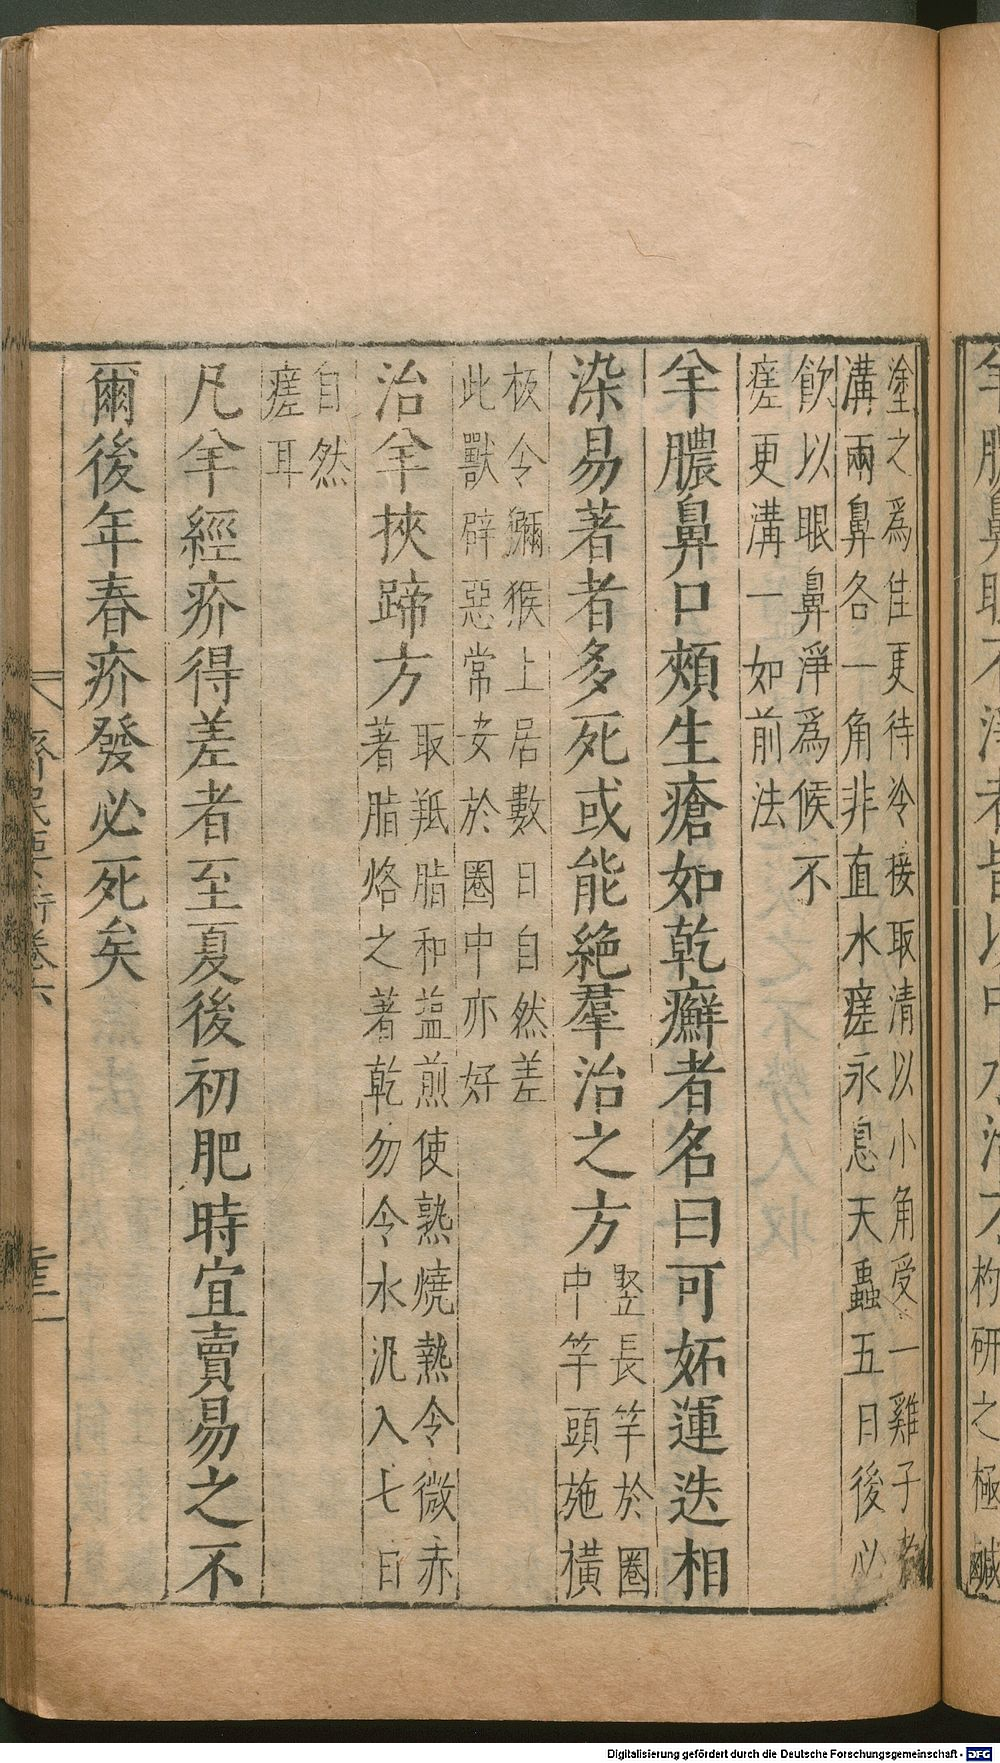 羊膿鼻眼不淨者皆以中水治方
杓研之極鹹
塗之爲佳更待冷接取清以小角受一雞子者
溝兩鼻各一角非直水瘥永息天蟲五日後必
飲以眼鼻淨爲候不
瘥更溝一如前法
羊膿鼻口頰生瘡如乾癬者名曰可妬運迭相
染易著者多死或能絶羣治之方
竪長竿於圈
中竿頭施橫
板令獼猴上居數日自然差
此獸辟惡常安於圈中亦好
治羊挾蹄方
取羝脂和塩煎使熟燒熱令微赤
著脂烙之著乾勿令水汎入七日
自然
瘥耳
凡羊經疥得差者至夏後初肥時宜賣易之不
爾後年春疥發必死矣
齊民要術卷六
Digitalisierung gefördert durch die Deutsche Forschungsgemeinschaft - DFG